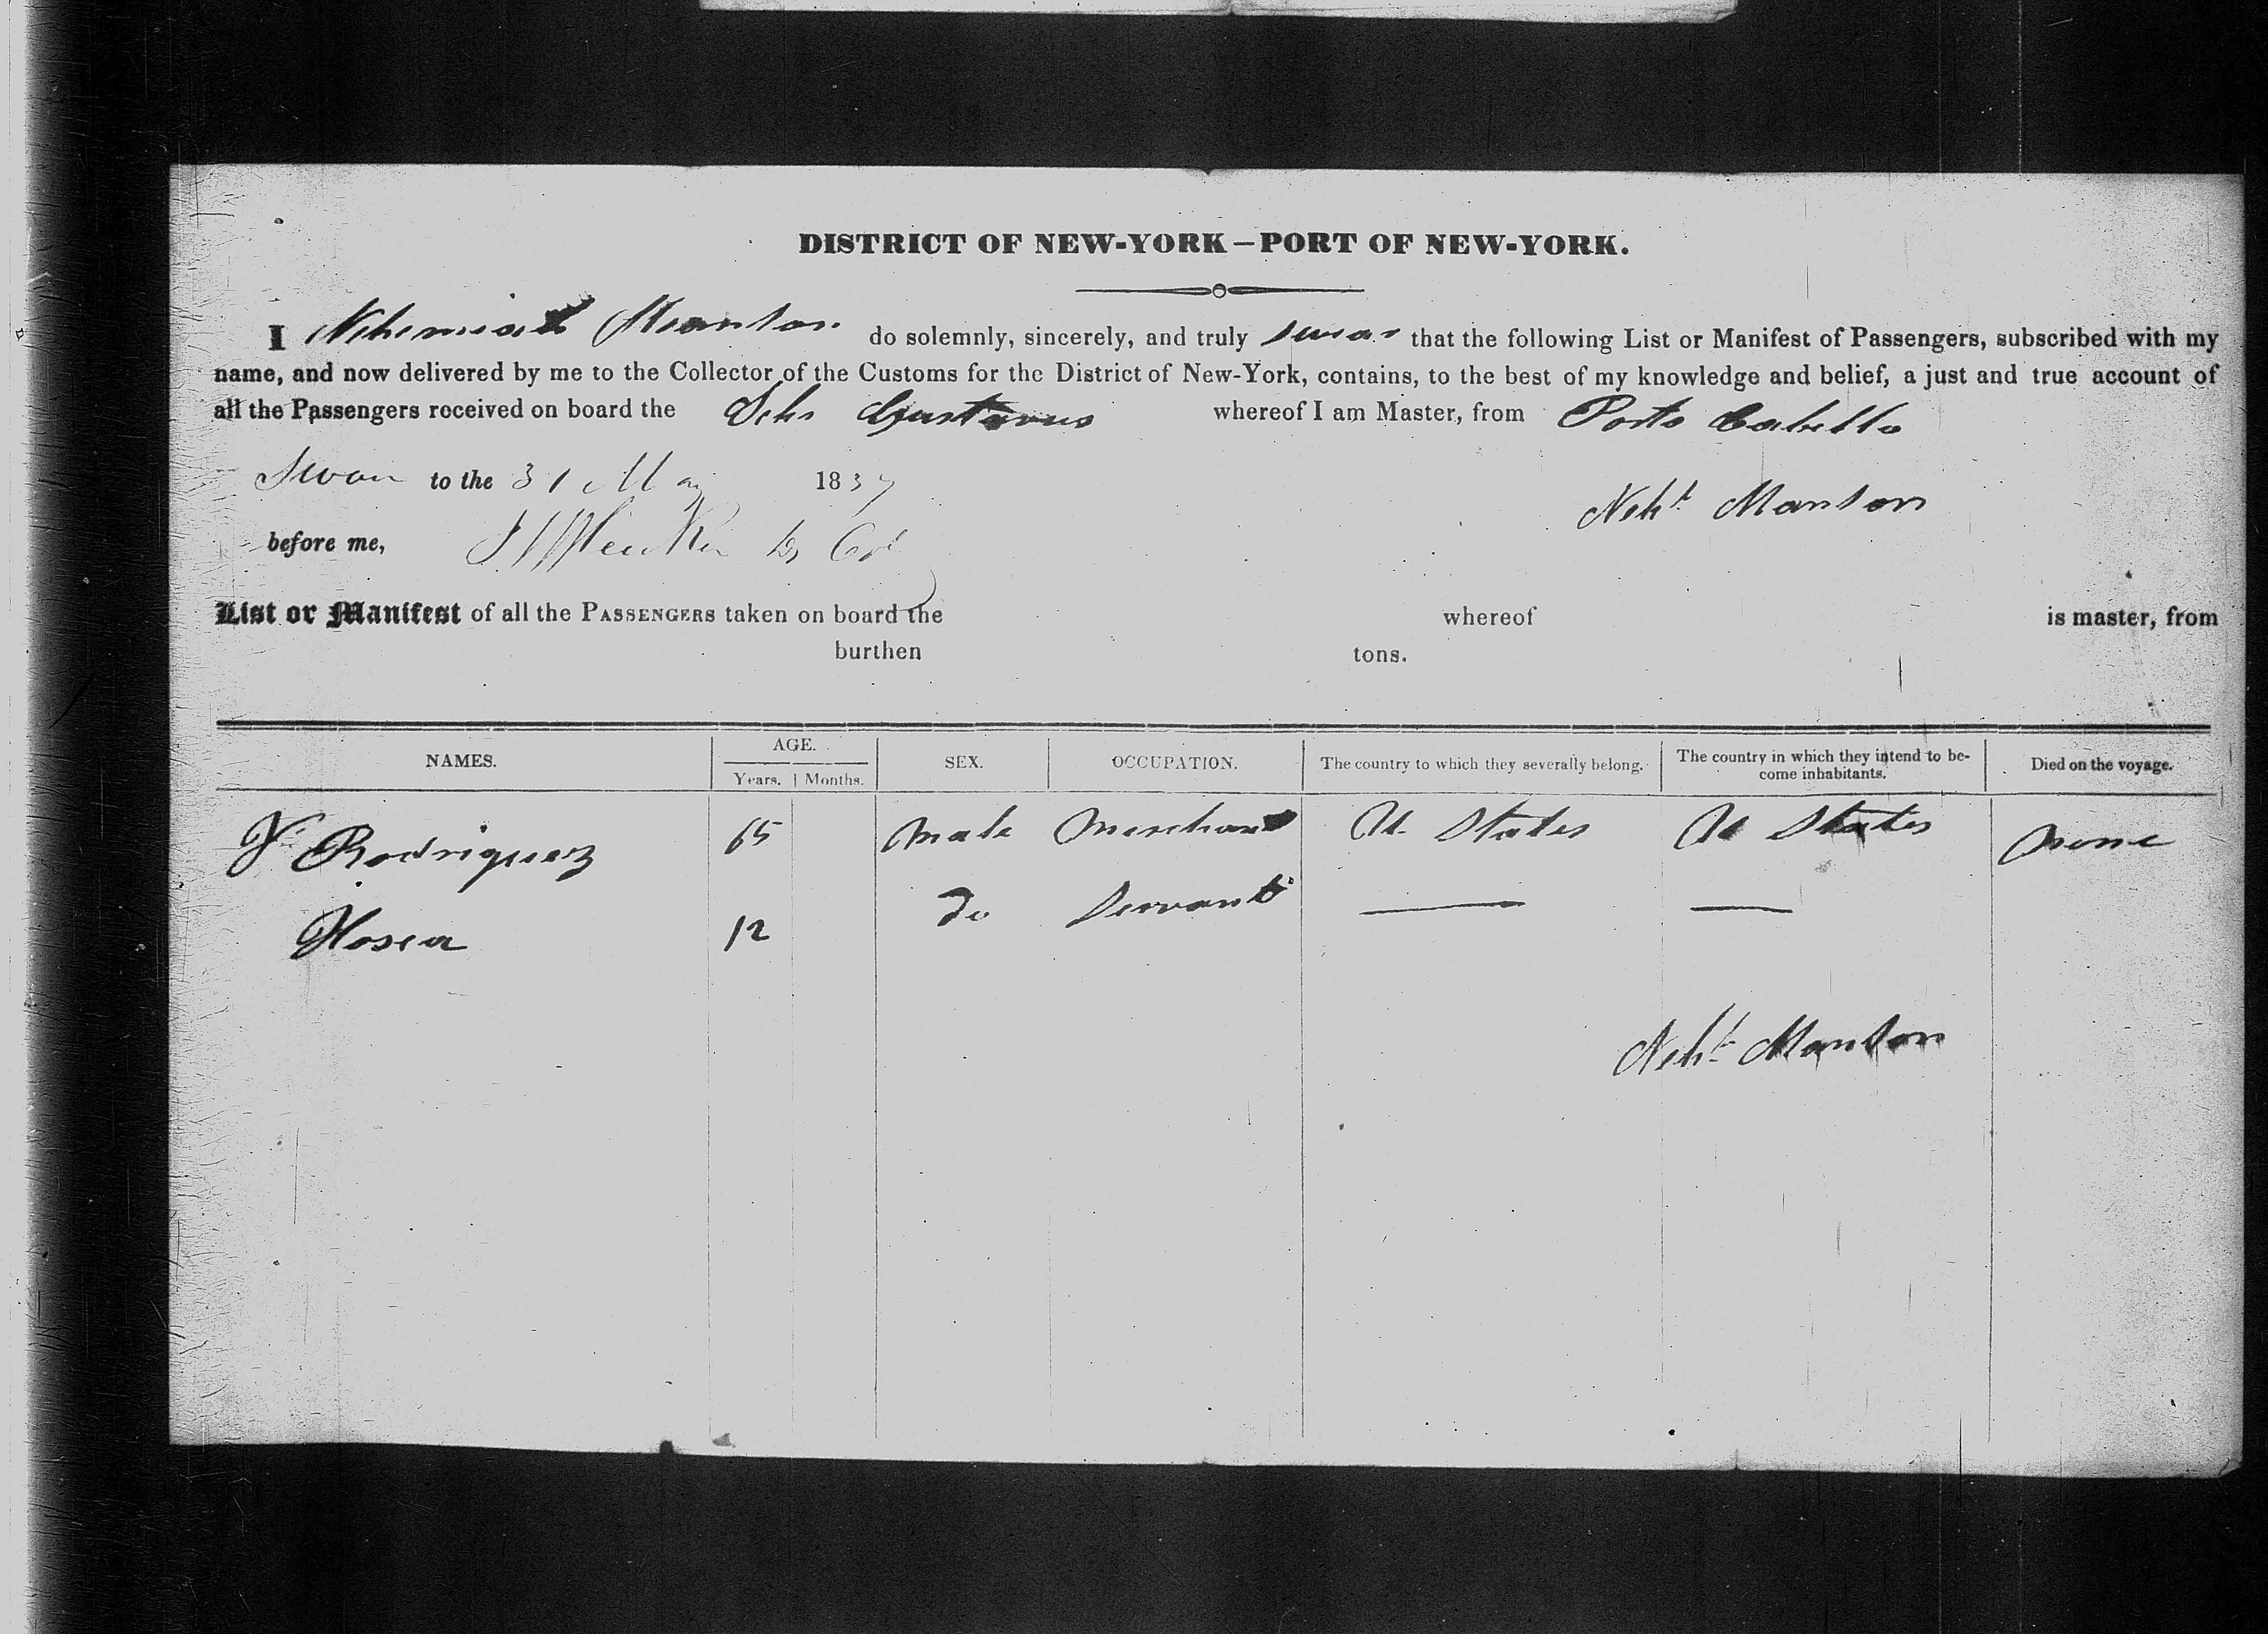 DISTRICT OF NEW-YORK – PORT OF NEW-YORK.
I Nehemiah Manton do solemnly, sincerely, and truly swear that the following List or Manifest of Passengers, subscribed with my
name, and now delivered by me to the Collector of the Customs for the District of New-York, contains, to the best of my knowledge and belief, a just and true account of
all the Passengers received on board the Schr Gustavus whereof I am Master, from Porto Cabello
Sworn to the 31 May 1837
Neh. Manton
before me,
List or Manifest of all the PASSENGERS taken on board the whereof is master, from
burthen tons.
NAMES. AGE. Years. Months. SEX. OCCUPATION. The country to which they severally belong. The country in which they intend to be-
come inhabitants. Died on the voyage.
Rodriguez 65 male Merchant U. States U States none
Hosea 12 Do Servant — —
Neh. Manton